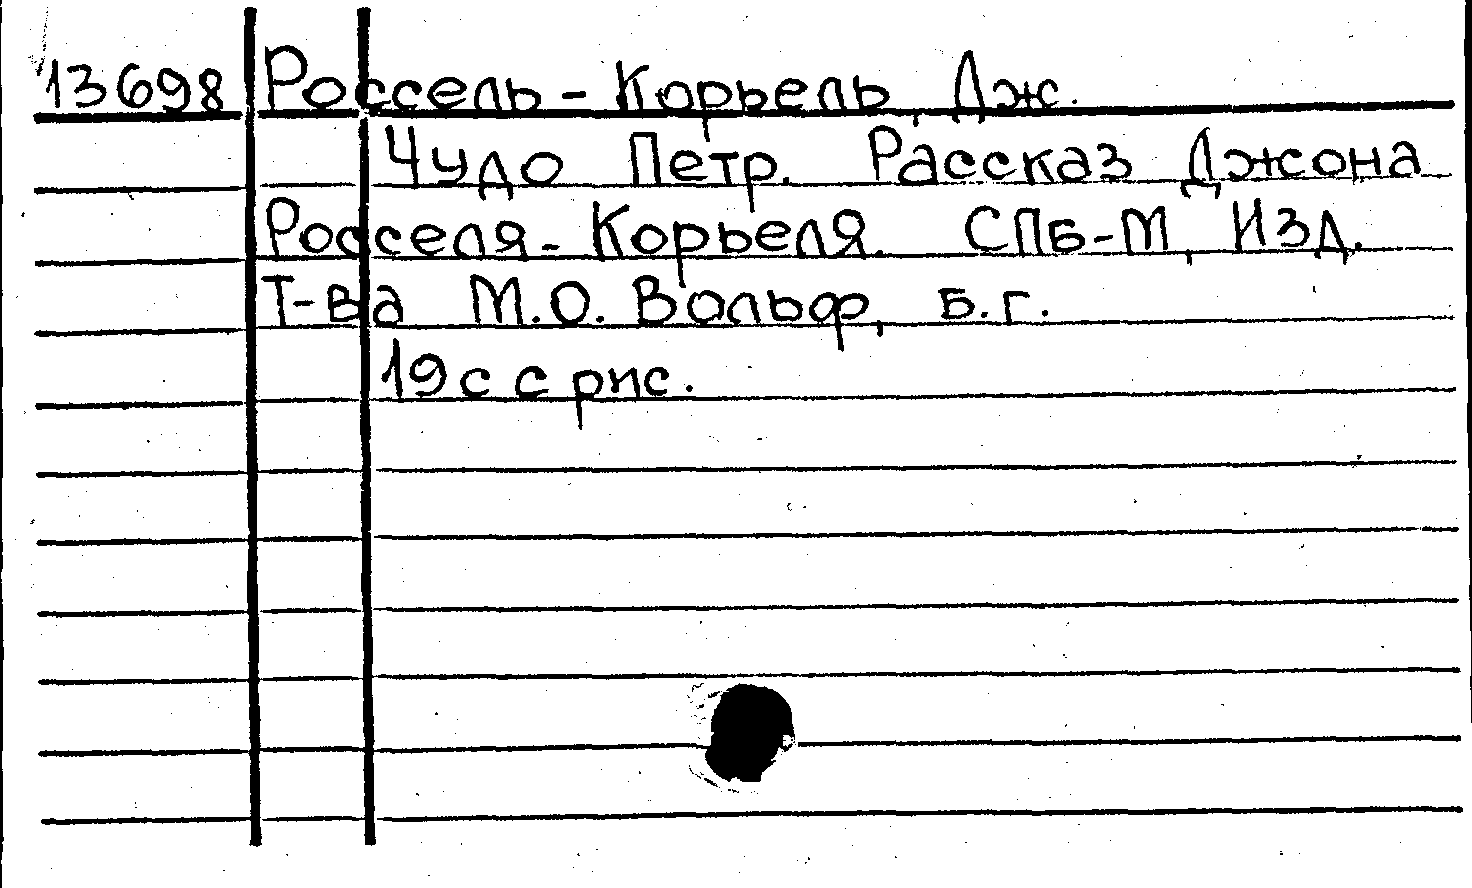 13698 Россель - Корьель, Дж.
Чудо Петр. Рассказ Джона
Росселя - Корьеля. СПБ-М, Изд.
Т-ва М.О. Вольф, Б.г.
19 с с рис.